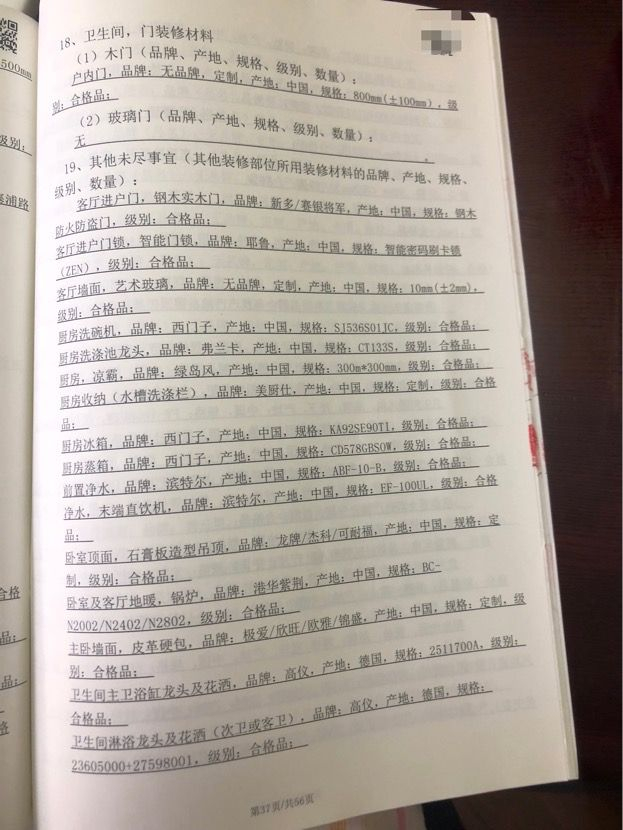 500mm
级别：
溪浦路
合格
品；
品；
格
18、卫生间，门装修材料
（1）木门（品牌、产地、规格、级别、数量）：
户内门，品牌：无品牌，定制，产地：中国，规格：800mm(±100mm)，级
别：合格品；
（2）玻璃门（品牌、产地、规格、级别、数量）：
无。
19、其他未尽事宜（其他装修部位所用装修材料的品牌、产地、规格、
级别、数量）：
客厅进户门，钢木实木门，品牌：新多/赛银将军，产地：中国，规格：钢木
防火防盗门，级别：合格品；
客厅进户门锁，智能门锁，品牌：耶鲁，产地：中国，规格：智能密码刷卡锁
（ZEN），级别：合格品；
客厅墙面，艺术玻璃，品牌：无品牌，定制，产地：中国，规格：10mm(±2mm)，
级别：合格品；
厨房洗碗机，品牌：西门子，产地：中国，规格：SJ536S01JC，级别：合格品；
厨房洗涤池龙头，品牌：弗兰卡，产地：中国，规格：CT133S，级别：合格品；
厨房，凉霸，品牌：绿岛风，产地：中国，规格：300m*300mm，级别：合格品；
厨房收纳（水槽洗涤栏），品牌：美厨仕，产地：中国，规格：定制，级别：合格
品；
厨房冰箱，品牌：西门子，产地：中国，规格：KA92SE90TI，级别：合格品；
厨房蒸箱，品牌：西门子，产地：中国，规格：CD578GBSOW，级别：合格品；
前置净水，品牌：滨特尔，产地：中国，规格：ABF-10-B，级别：合格品；
净水，末端直饮机，品牌：滨特尔，产地：中国，规格：EF-100UL，级别：合格
品；
卧室顶面，石膏板造型吊顶，品牌：龙牌/杰科/可耐福，产地：中国，规格：定
制，级别：合格品；
卧室及客厅地暖，锅炉，品牌：港华紫荆，产地：中国，规格：BC-
N2002/N2402/N2802，级别：合格品；
主卧墙面，皮革硬包，品牌：极爱/欣旺/欧雅/锦盛，产地：中国，规格：定制，级
别：合格品；
卫生间主卫浴缸龙头及花洒，品牌：高仪，产地：德国，规格：2511700A，级别：
合格品；
卫生间淋浴龙头及花洒（次卫或客卫），品牌：高仪，产地：德国，规格：
23605000+27598001，级别：合格品；
第37页/共56页